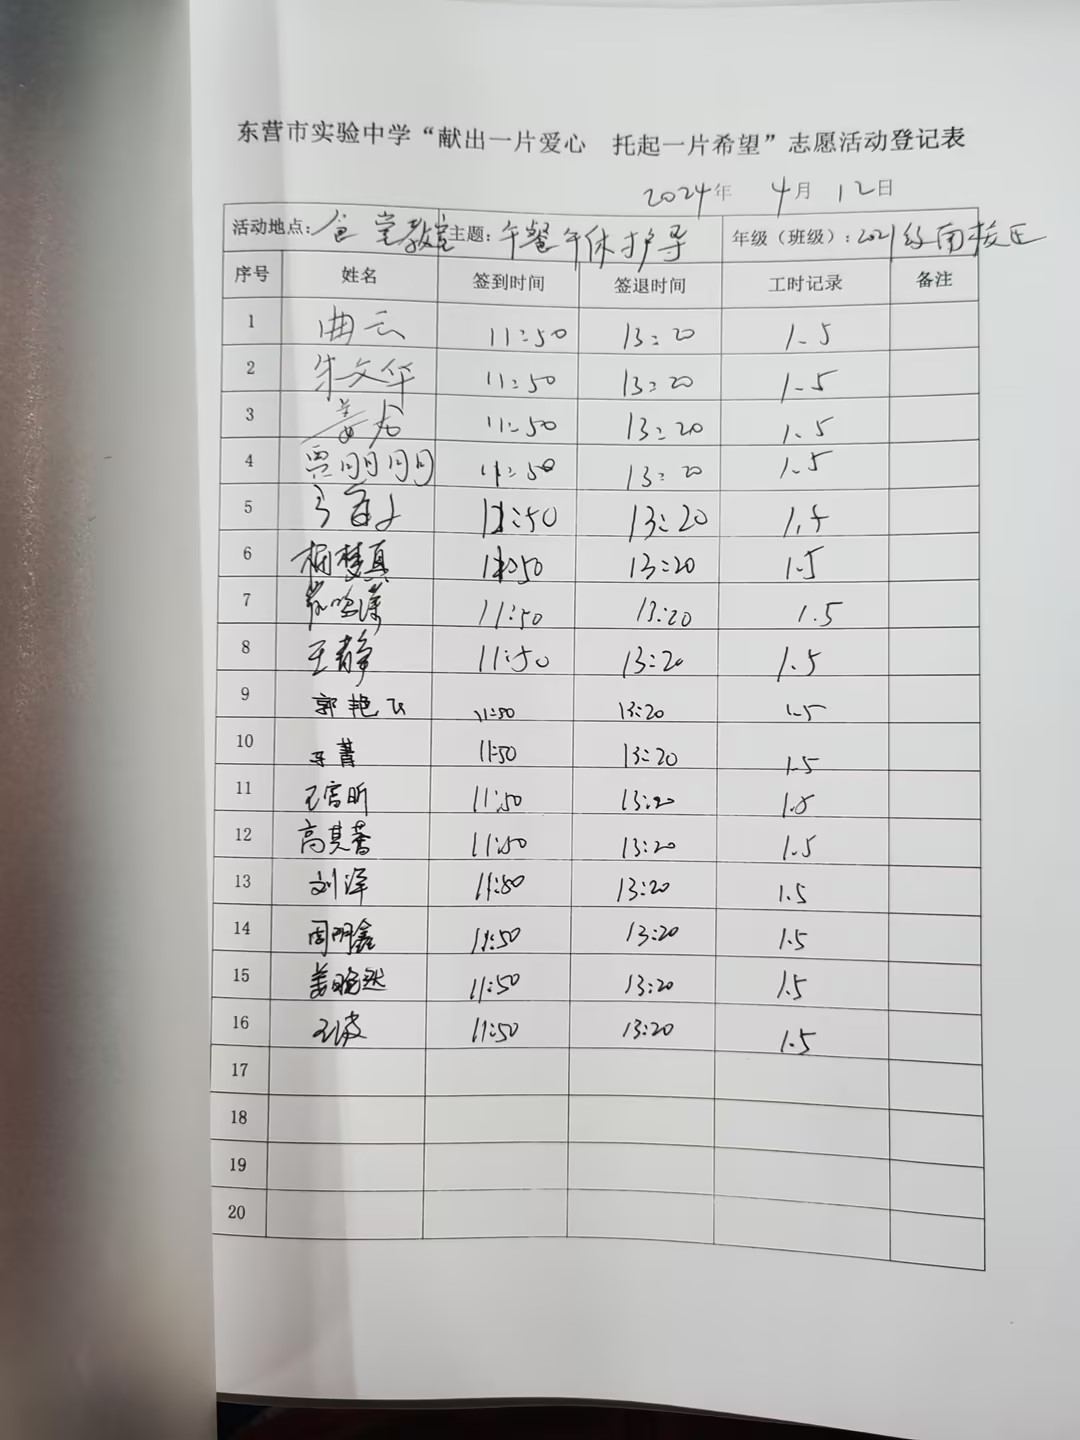 东营市实验中学“献出一片爱心 托起一片希望”志愿活动登记表
2024年 4月 12日
活动地点：食堂教室 主题：午餐午休护导 年级（班级）：2021级南校区
序号 姓名 签到时间 签退时间 工时记录 备注
1 曲云 11:50 13:20 1.5
2 朱文华 11:50 13:20 1.5
3 姜龙 11:50 13:20 1.5
4 贾明明 11:50 13:20 1.5
5 11:50 13:20 1.5
6 梦真 11:50 13:20 1.5
7 11:50 13:20 1.5
8 王静 11:50 13:20 1.5
9 郭艳飞 11:50 13:20 1.5
10 王菁 11:50 13:20 1.5
11 王雪昕 11:50 13:20 1.5
12 高其蕃 11:50 13:20 1.5
13 刘泽 11:50 13:20 1.5
14 周明鑫 11:50 13:20 1.5
15 姜晓然 11:50 13:20 1.5
16 王波 11:50 13:20 1.5
17
18
19
20